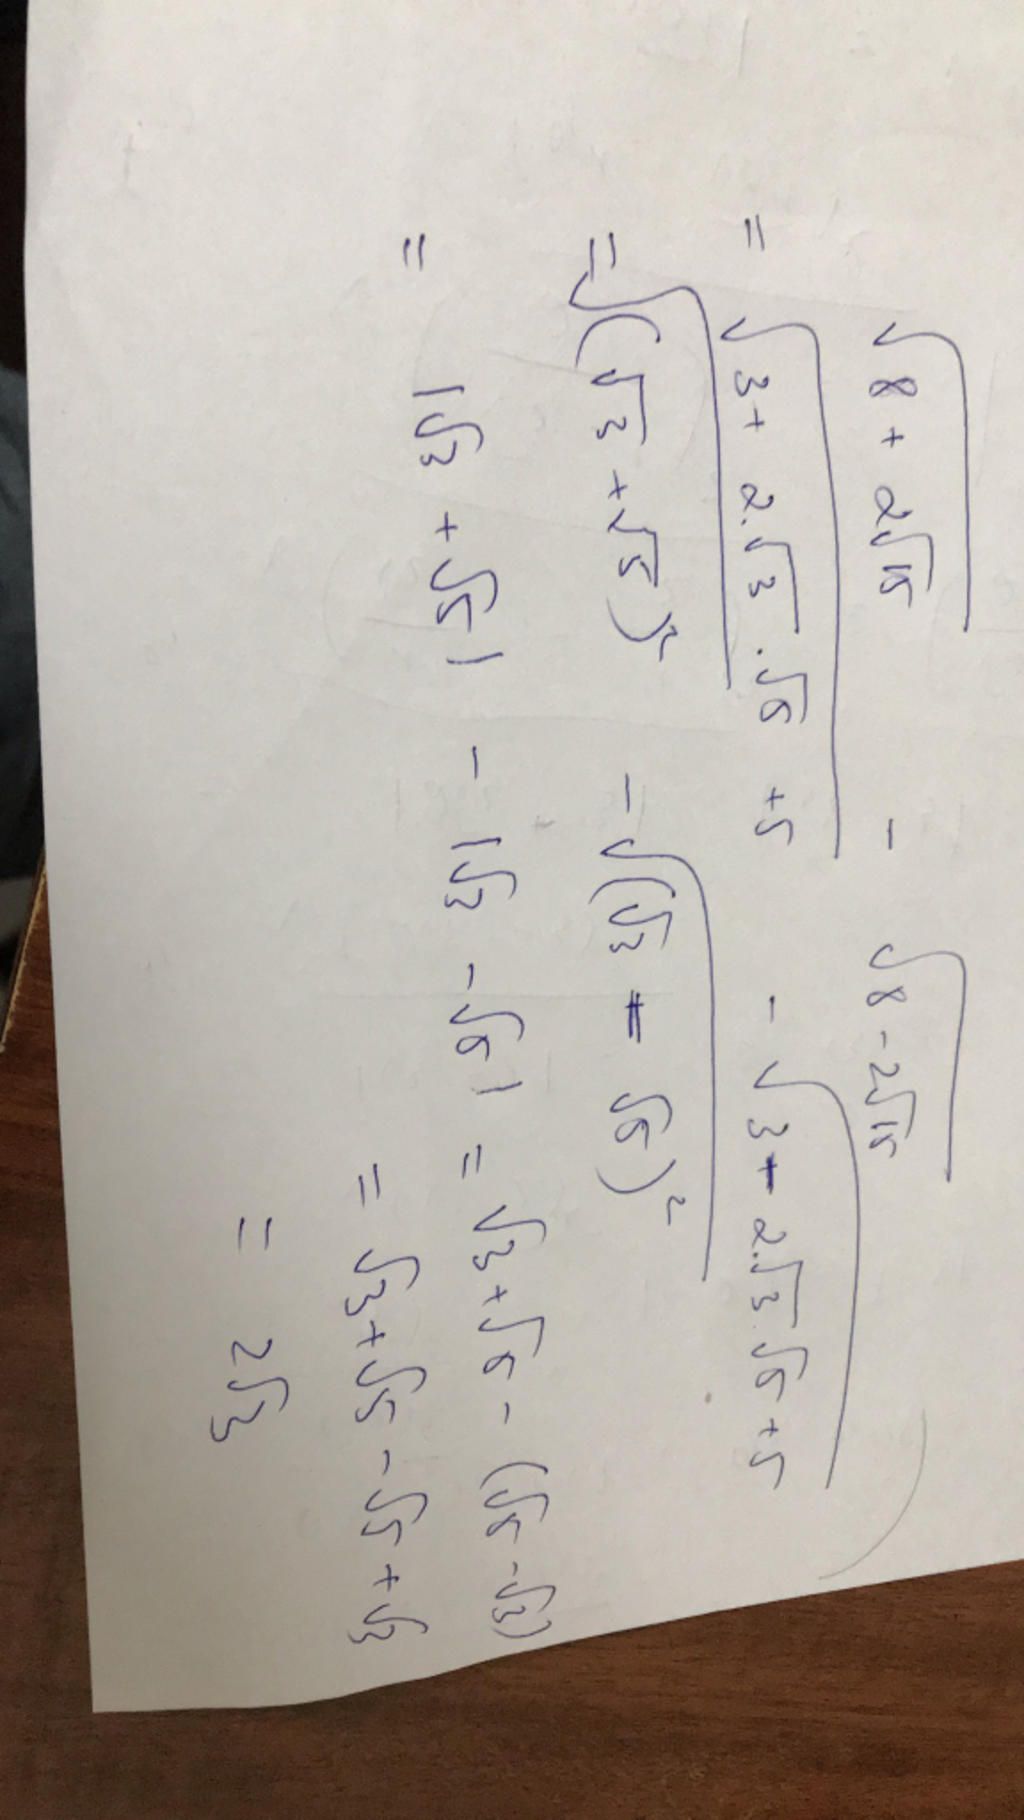 √(8 + 2√15) - √(8 - 2√15)
= √(3 + 2.√3.√5 + 5) - √(3 - 2.√3.√5 + 5)
= √(√3 + √5)² - √(√3 - √5)²
= |√3 + √5| - |√3 - √5| = √3 + √5 - (√5 - √3)
= √3 + √5 - √5 + √3
= 2√3